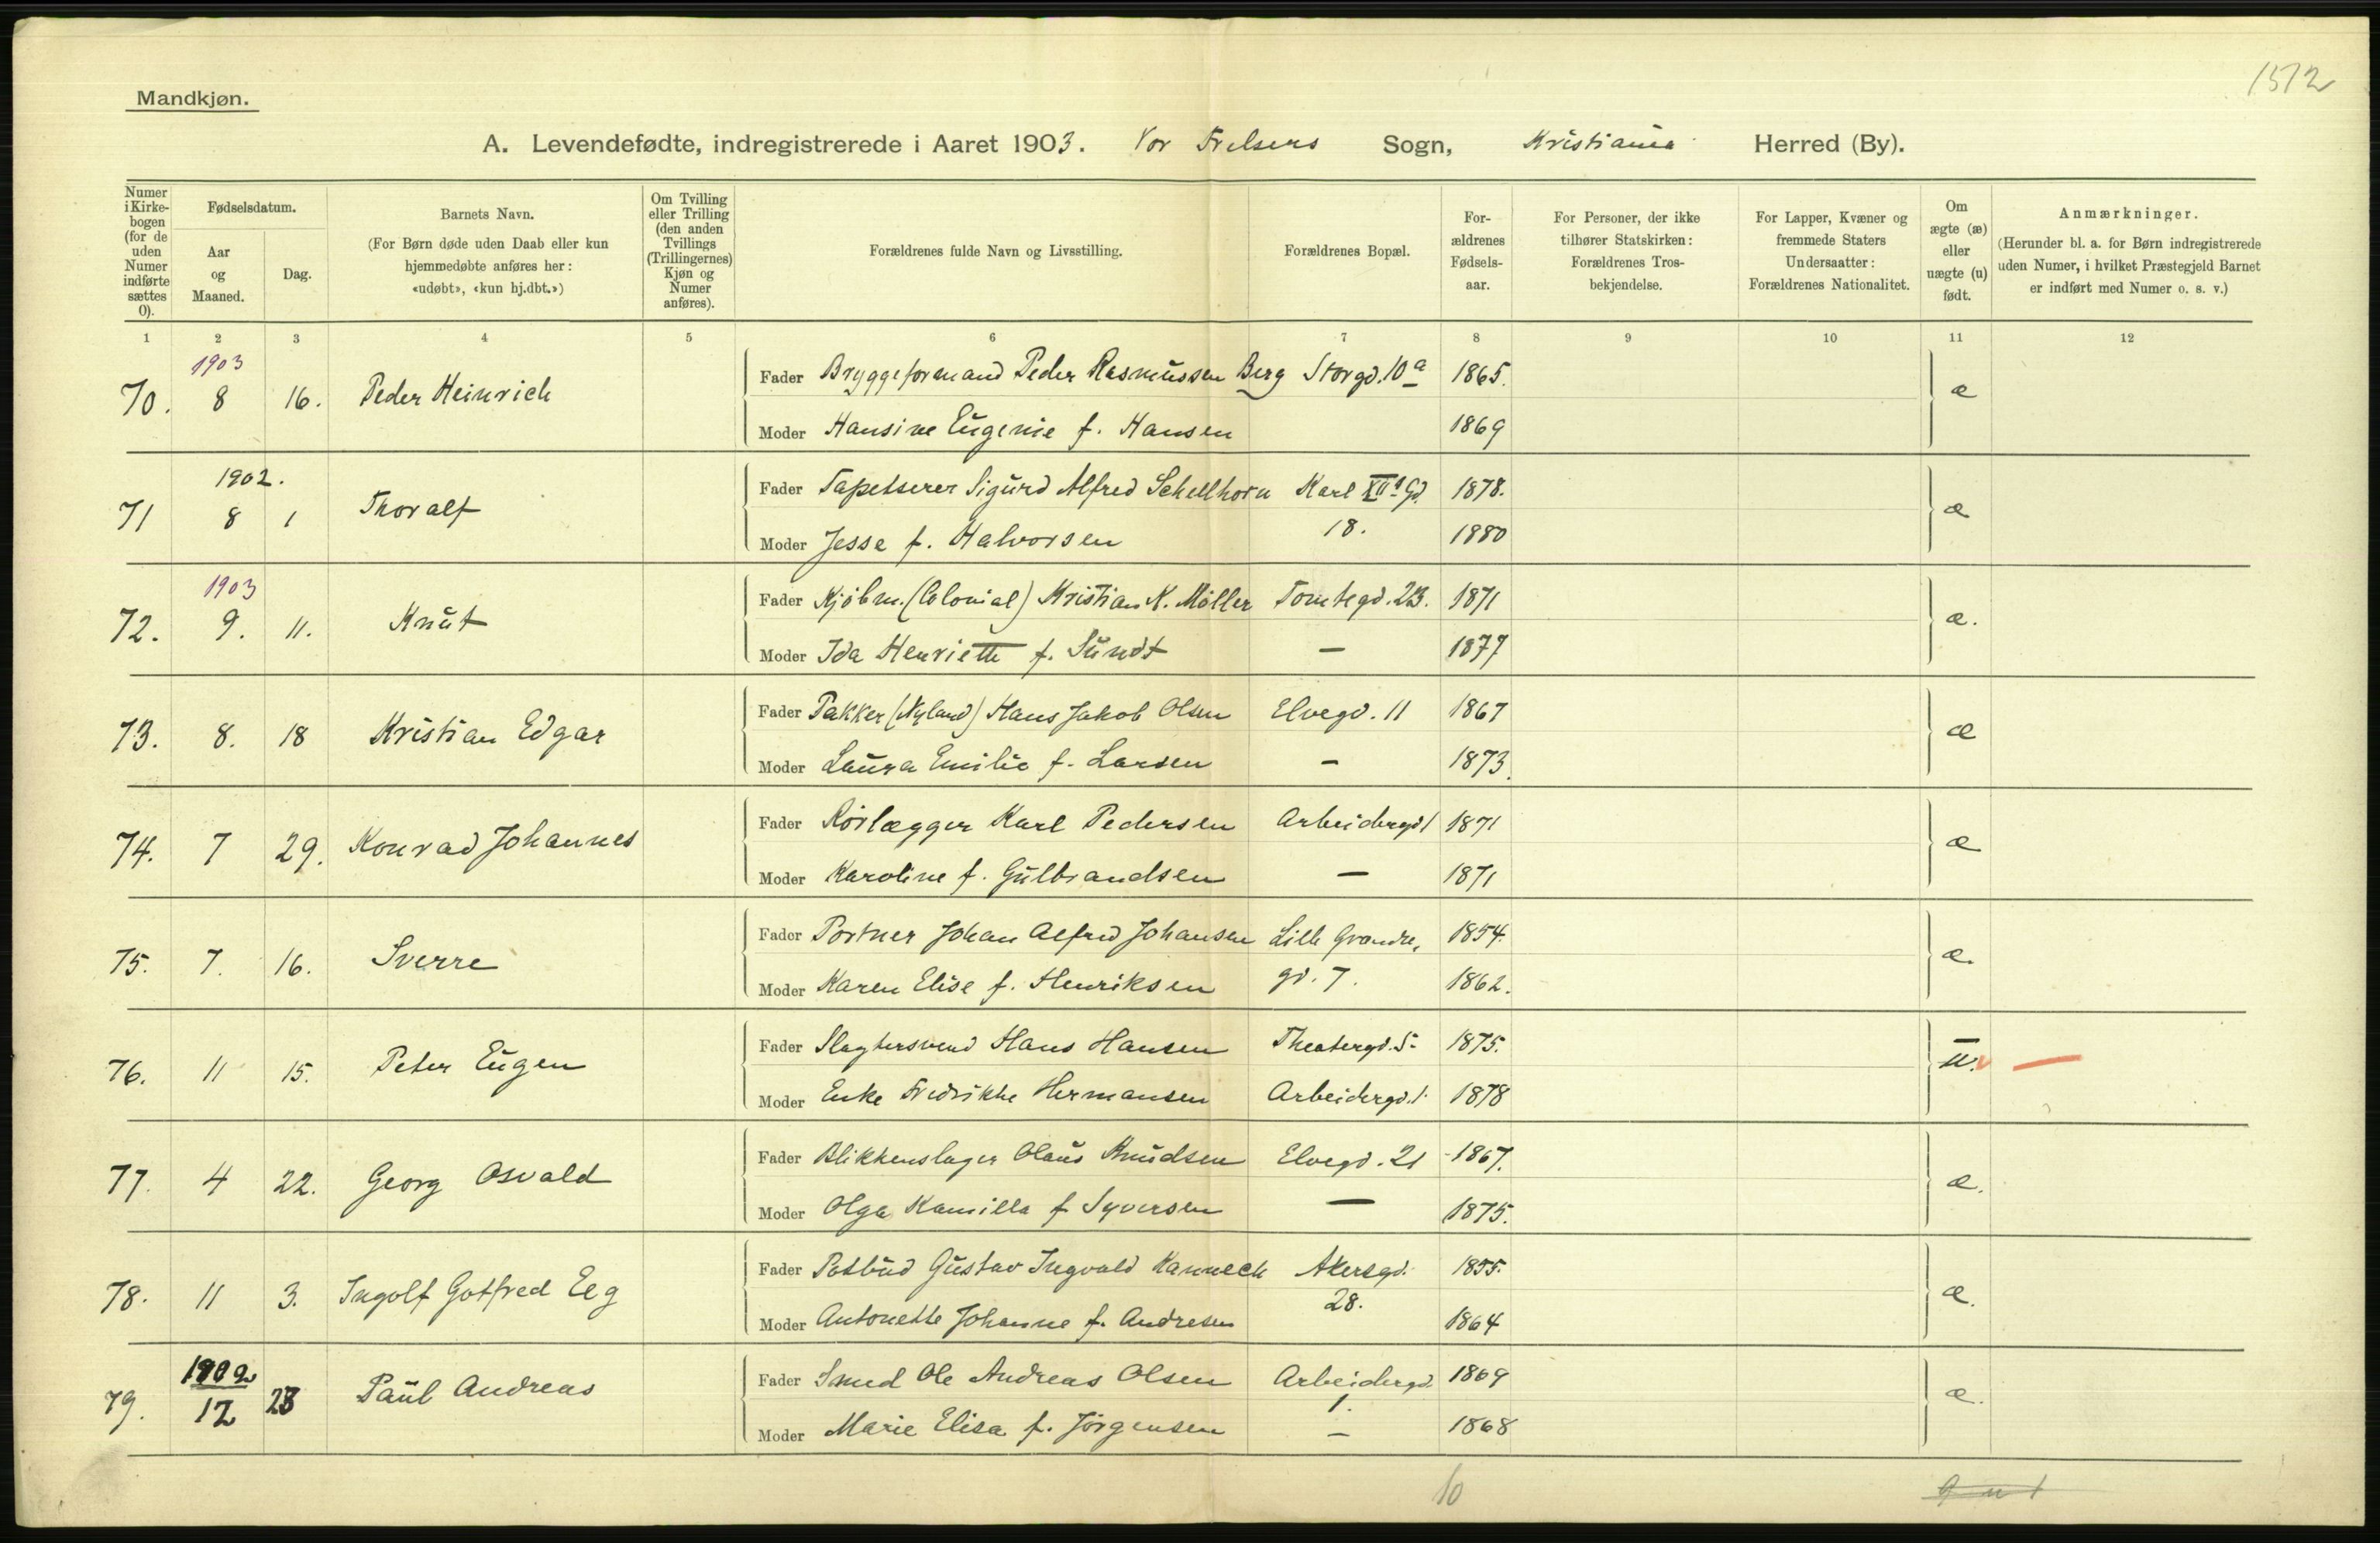 1572
Mandkjøn.
A. Levendefødte, indregistrerede i Aaret 1903. Vor Frelsers Sogn, Kristiania Herred (By).
Numer i Kirkebogen (for de uden Numer indførte sættes 0).
Fødselsdatum.
Aar og Maaned.
Dag.
Barnets Navn.
(For Børn døde uden Daab eller kun hjemmedøbte anføres her: «udøbt», «kun hj.dbt.»)
Om Tvilling eller Trilling (den anden Tvillings (Trillingernes) Kjøn og Numer anføres).
Forældrenes fulde Navn og Livsstilling.
Forældrenes Bopæl.
Forældrenes Fødselsaar.
For Personer, der ikke tilhører Statskirken: Forældrenes Trosbekjendelse.
For Lapper, Kvæner og fremmede Staters Undersaatter: Forældrenes Nationalitet.
Om ægte (æ) eller uægte (u) født.
Anmærkninger.
(Herunder bl. a. for Børn indregistrerede uden Numer, i hvilket Præstegjeld Barnet er indført med Numer o. s. v.)
1 2 3 4 5 6 7 8 9 10 11 12
1903
70. 8 16. Peder Heinrich
Fader Bryggeformand Peder Rasmussen Berg Storgd. 10a 1865. æ
Moder Hansine Eugenie f. Hansen 1869
1902.
71 8 1 Thoralf
Fader Tapetserer Sigurd Alfred Schellhorn Karl XIIs Gd. 1878. æ
Moder Jesse f. Halvorsen 18. 1880
1903
72. 9. 11. Knut
Fader Kjøbm. (Colonial) Kristian K. Møller Tomtegd. 23. 1871 æ.
Moder Ida Henriette f. Sundt — 1877
73. 8. 18 Kristian Edgar
Fader Pakker (Nyland) Hans Jakob Olsen Elvegd. 11 1867 æ
Moder Laura Emilie f. Larsen — 1873.
74. 7 29. Konrad Johannes
Fader Rørlægger Karl Pedersen Arbeidergd 1 1871 æ
Moder Karoline f. Gulbrandsen — 1871
75. 7. 16. Sverre
Fader Portner Johan Alfred Johansen Lille Grændse, 1854. æ.
Moder Karen Elise f. Henriksen gd. 7. 1862.
76. 11 15. Peter Eugen
Fader Slagtersvend Hans Hansen Theatergd. 5 1875. u. —
Moder Enke Fredrikke Hermansen Arbeidergd. 1. 1878
77. 4 22. Georg Osvald
Fader Blikkenslager Olaus Knudsen Elvegd. 21 1867. æ.
Moder Olga Kamilla f Syversen — 1875.
78. 11 3. Ingolf Gotfred Eeg
Fader Postbud Gustav Ingvald Akersgd. 1855. æ.
Moder Antonette Johanne f. Andresen 28. 1864
1902
79. 12 28 Paul Andreas
Fader Smed Ole Andreas Olsen Arbeidergd. 1. 1869 æ.
Moder Marie Elisa f. Jørgensen — 1868
10
9 u 1